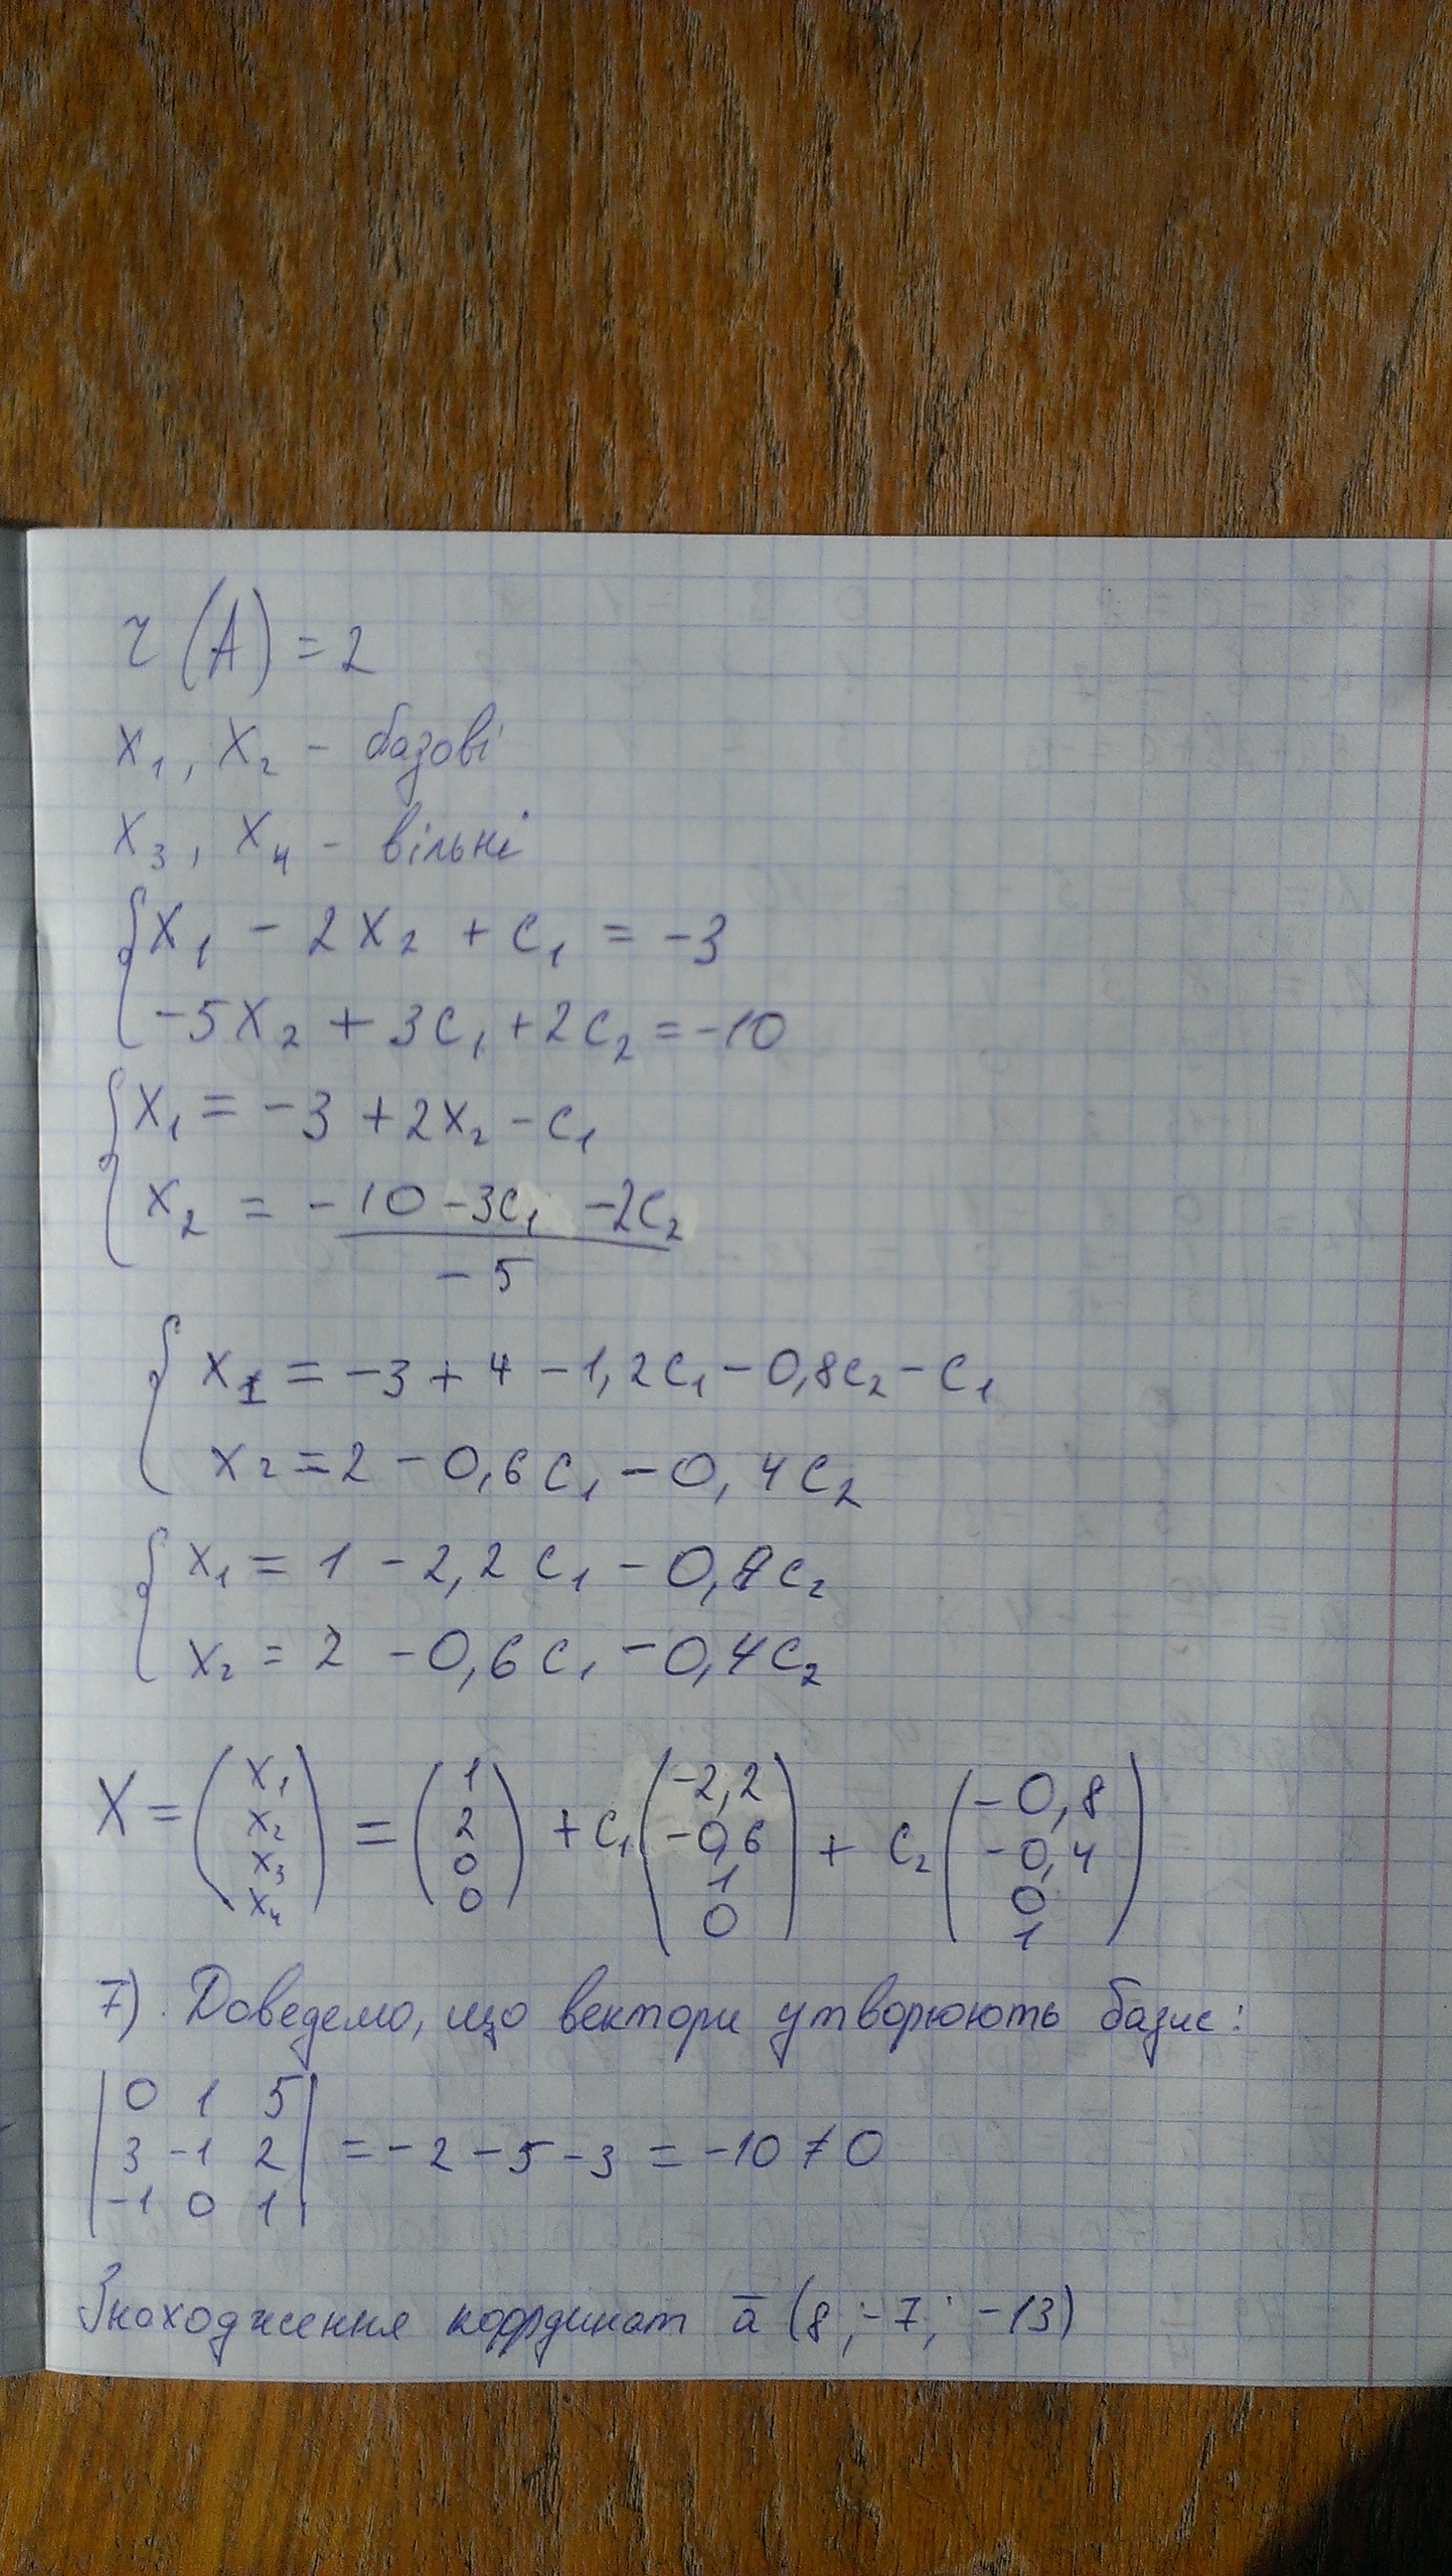 r (A) = 2
x₁, x₂ - базові
x₃, x₄ - вільні
{ x₁ - 2x₂ + c₁ = -3
-5x₂ + 3c₁ + 2c₂ = -10
{ x₁ = -3 + 2x₂ - c₁
x₂ = -10 - 3c₁ - 2c₂
-5
{ x₁ = -3 + 4 - 1,2c₁ - 0,8c₂ - c₁
x₂ = 2 - 0,6c₁ - 0,4c₂
{ x₁ = 1 - 2,2c₁ - 0,8c₂
x₂ = 2 - 0,6c₁ - 0,4c₂
X = (x₁ x₂ x₃ x₄) = (1 2 0 0) + c₁ (-2,2 -0,6 1 0) + c₂ (-0,8 -0,4 0 1)
7). Доведемо, що вектори утворюють базис:
| 0 1 5 |
| 3 -1 2 | = -2 - 5 - 3 = -10 ≠ 0
| -1 0 1 |
Знаходження координат ā (8; -7; -13)